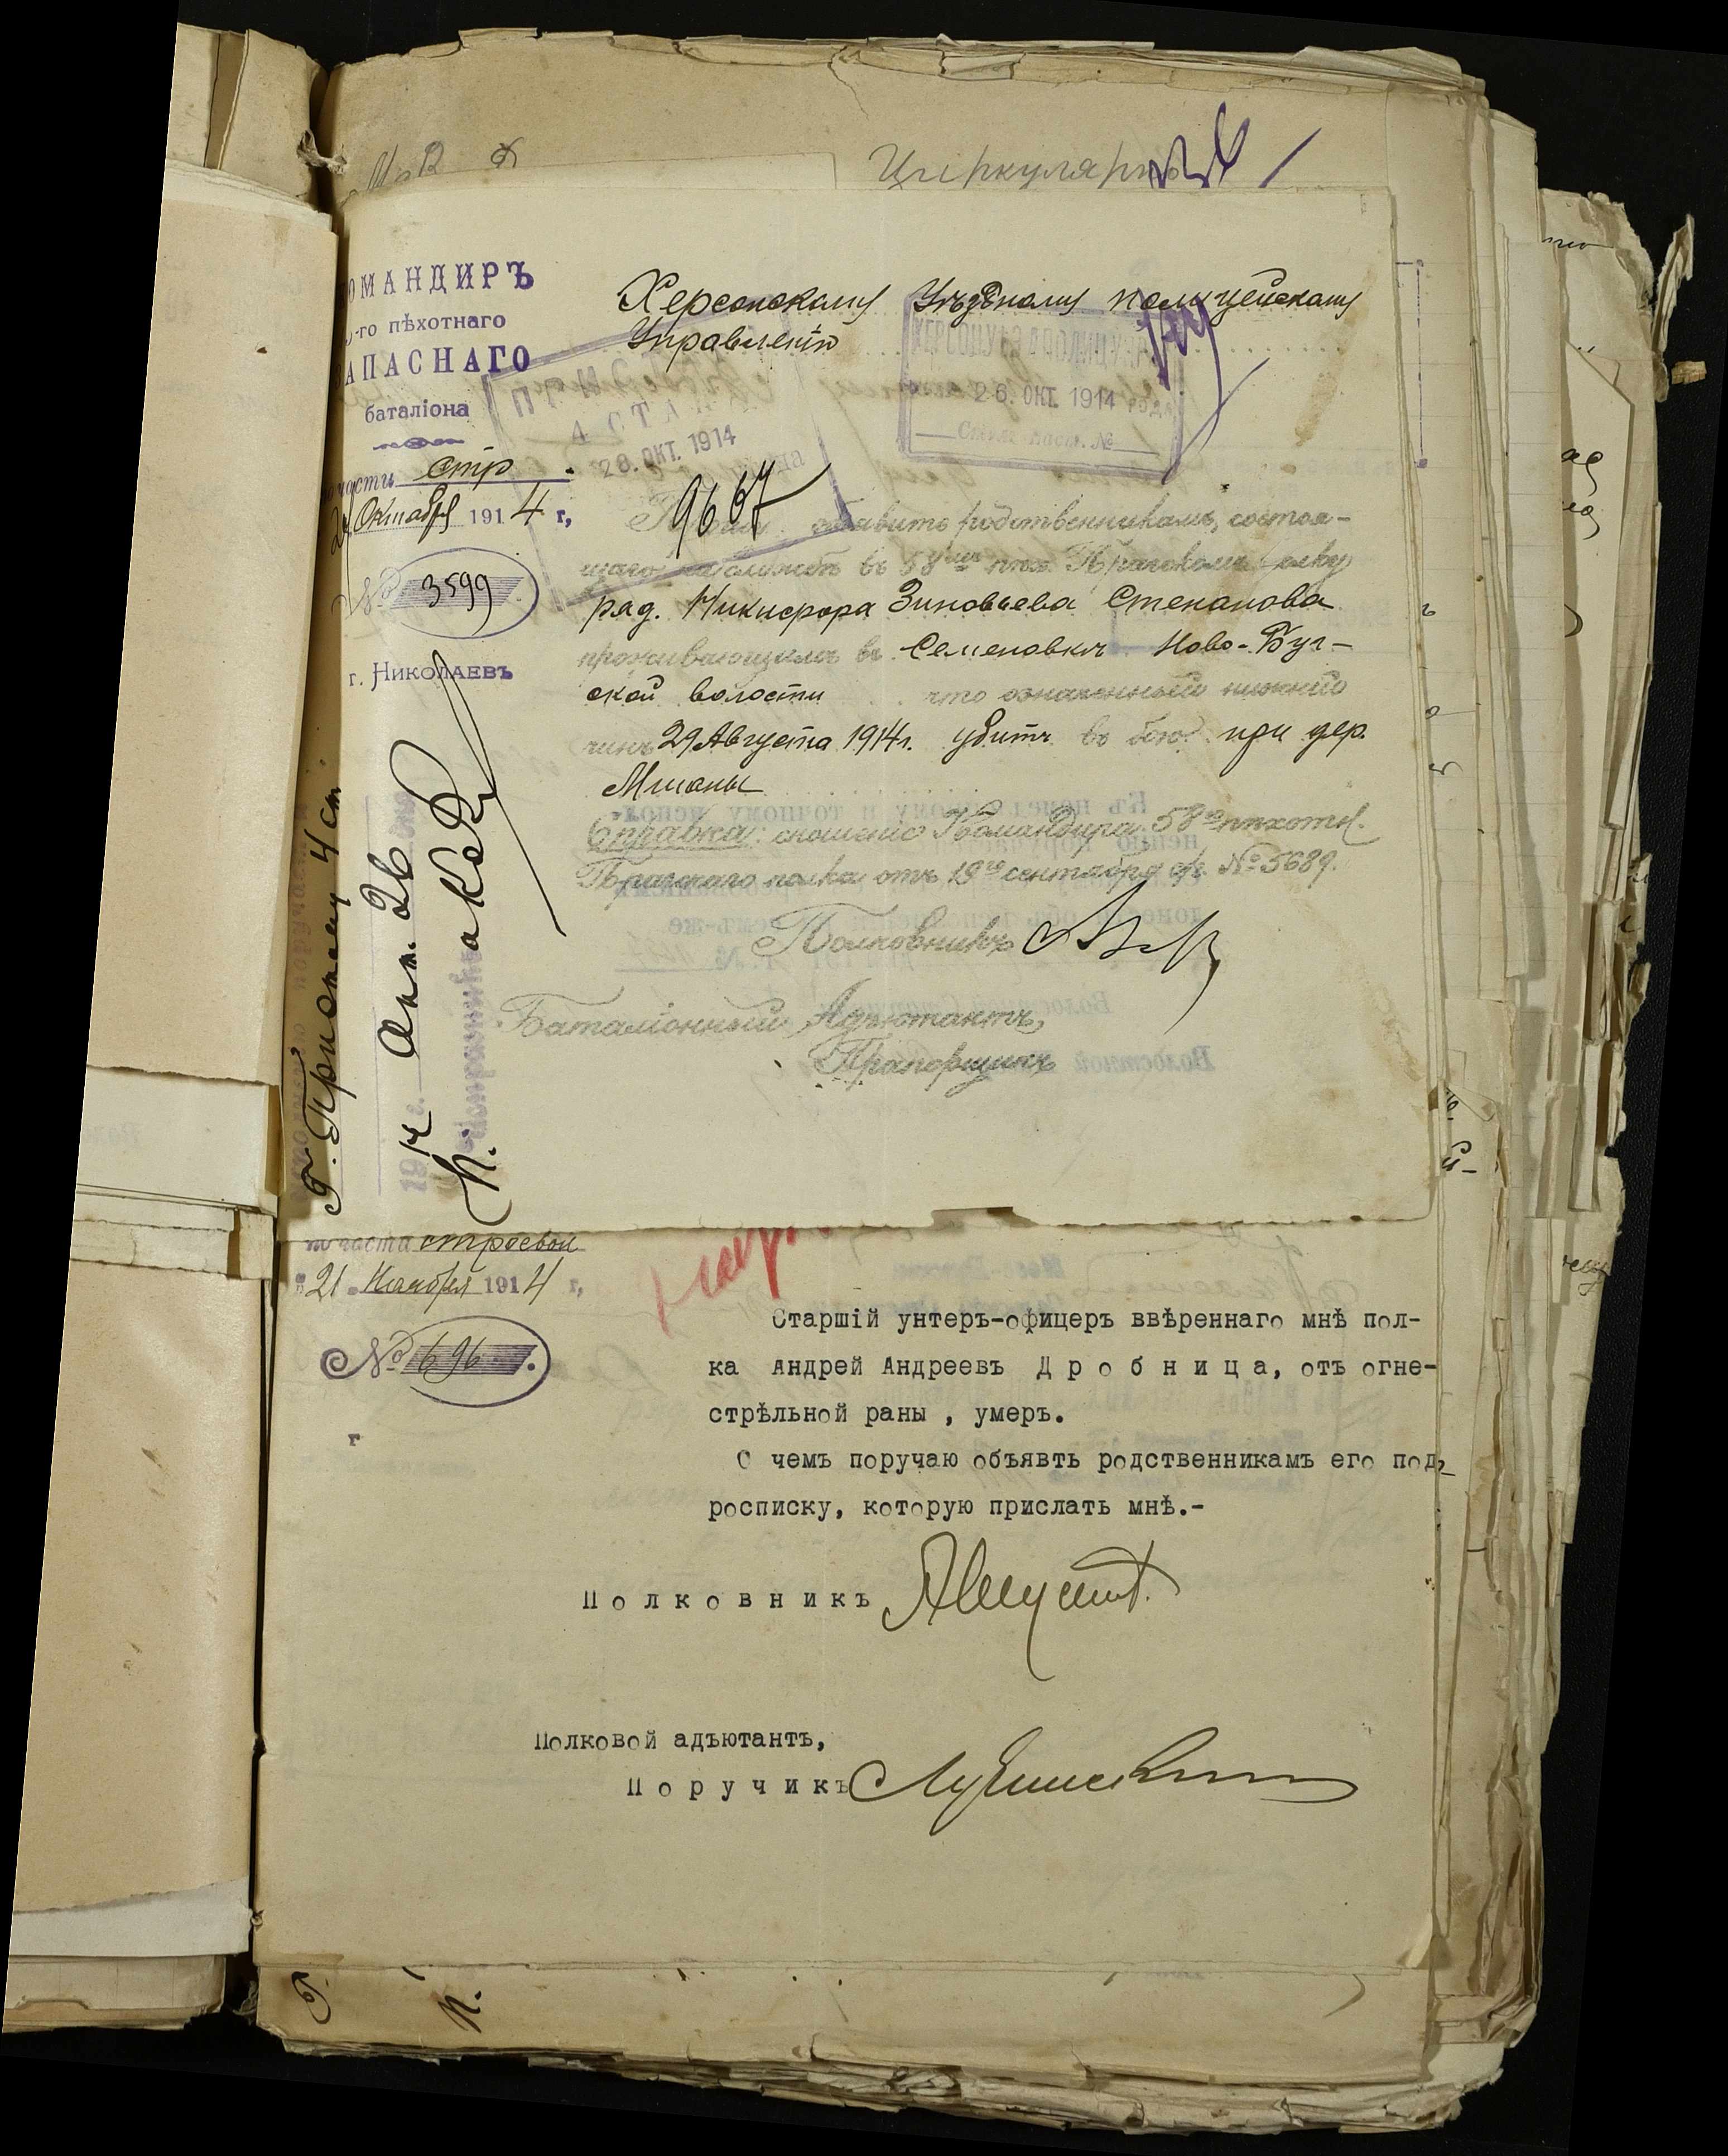 Циркулярно
ОМАНДИРЪ
го пѣхотнаго
АПАСНАГО
баталіона
части стр.
Октября 1914 г,
№ 3599
г. Николаевъ
Херсонскому Уѣздному полицейскому
Управленію
26. ОКТ. 1914 года
4 СТАНА
28. ОКТ. 1914
9667
объявить родственникамъ, состоя-
щаго на службѣ въ 58мъ пѣх. Прагскомъ полку
ряд. Никифора Зиновьева Степанова
проживающимъ въ Семеновкѣ Ново-Буг-
ской волости что означенный нижній
чинъ 29 Августа 1914 г. убитъ въ бою при дер.
Мшаны
Справка: сношеніе Командира 58го пѣхотн.
Прагскаго полка отъ 19го сентября с/г. № 5689.
Полковникъ
Баталіонный Адъютантъ,
Прапорщикъ
Г. Приставу 4 ст.
1914 г. Окт. 26
части строевой
21 Ноября 1914 г,
№ 696
г
Старшій унтеръ-офицеръ ввѣреннаго мнѣ пол-
ка Андрей Андреевъ Д р о б н и ц а, отъ огне-
стрѣльной раны , умеръ.
О чемъ поручаю объявть родственникамъ его под-
росписку, которую прислать мнѣ.-
П о л к о в н и к ъ
Полковой адъютантъ,
П о р у ч и к ъ